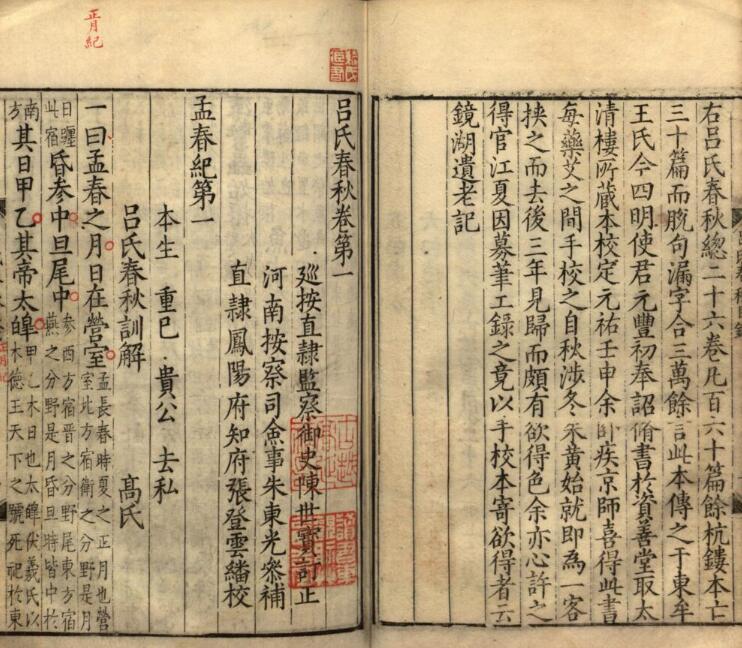 右呂氏春秋總二十六卷凡百六十篇餘杭鏤本亡
三十篇而脫句漏字合三萬餘言此本傳之于東牟
王氏今四明使君元豐初奉詔脩書於資善堂取太
清樓所藏本校定元祐壬申余臥疾京師喜得此書
每藥艾之間手校之自秋涉冬朱黃始就即為一客
挾之而去後三年見歸而頗有欲得色余亦心許之
得官江夏因募筆工錄之竟以手校本寄欲得者云
鏡湖遺老記
呂氏春秋卷第一
巡按直隸監察御史陳世寶訂正
河南按察司僉事朱東光叅補
直隸鳳陽府知府張登雲繙校
孟春紀第一
本生 重巳 貴公 去私
呂氏春秋訓解 高氏
一曰孟春之月日在營室孟長春時夏之正月也營室北方宿衛之分野是月
日躔此宿昏參中旦尾中參西方宿晉之分野尾東方宿燕之分野是月昏旦時皆中於
南方其日甲乙其帝太皞甲乙木日也太皞伏羲氏以木德王天下之號死祀於東
正月紀
正月紀